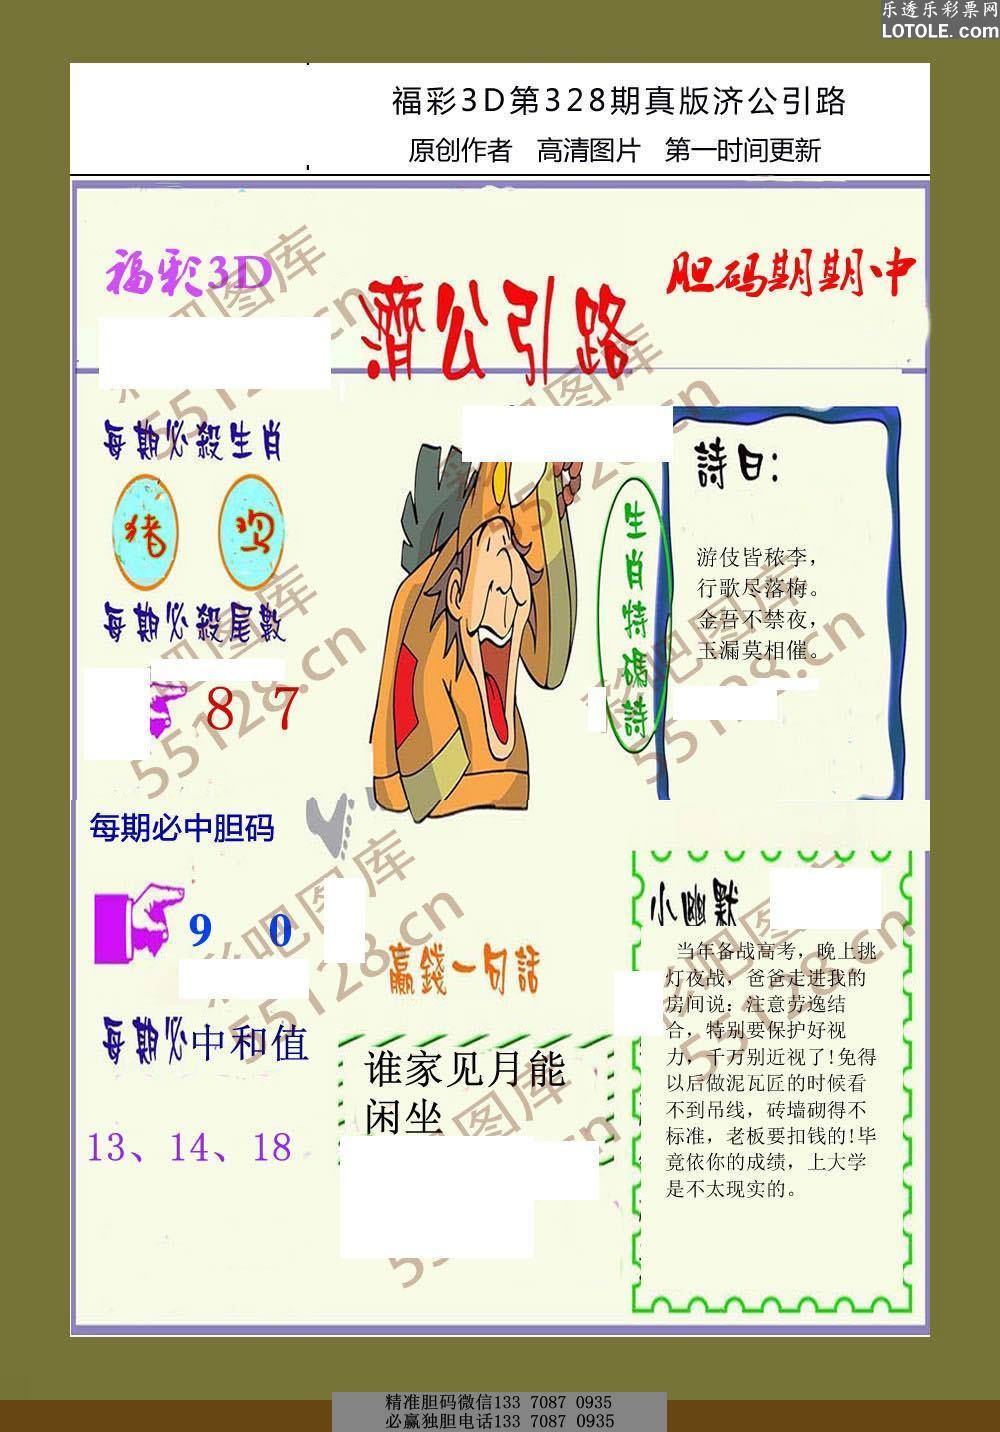 乐透乐彩票网
LOTOLE.com
福彩3D第328期真版济公引路
原创作者 高清图片 第一时间更新
福彩3D
濟公引路
胆码期期中
每期必殺生肖
猪 鸡
每期必殺尾數
8 7
生肖特碼詩
詩曰：
游伎皆秾李，
行歌尽落梅。
金吾不禁夜，
玉漏莫相催。
每期必中胆码
9 0
每期必中和值
13、14、18
贏錢一句話
谁家见月能
闲坐
小幽默
当年备战高考，晚上挑
灯夜战，爸爸走进我的
房间说：注意劳逸结
合，特别要保护好视
力，千万别近视了!免得
以后做泥瓦匠的时候看
不到吊线，砖墙砌得不
标准，老板要扣钱的!毕
竟依你的成绩，上大学
是不太现实的。
彩吧图库
55128.cn
精准胆码微信133 7087 0935
必赢独胆电话133 7087 0935